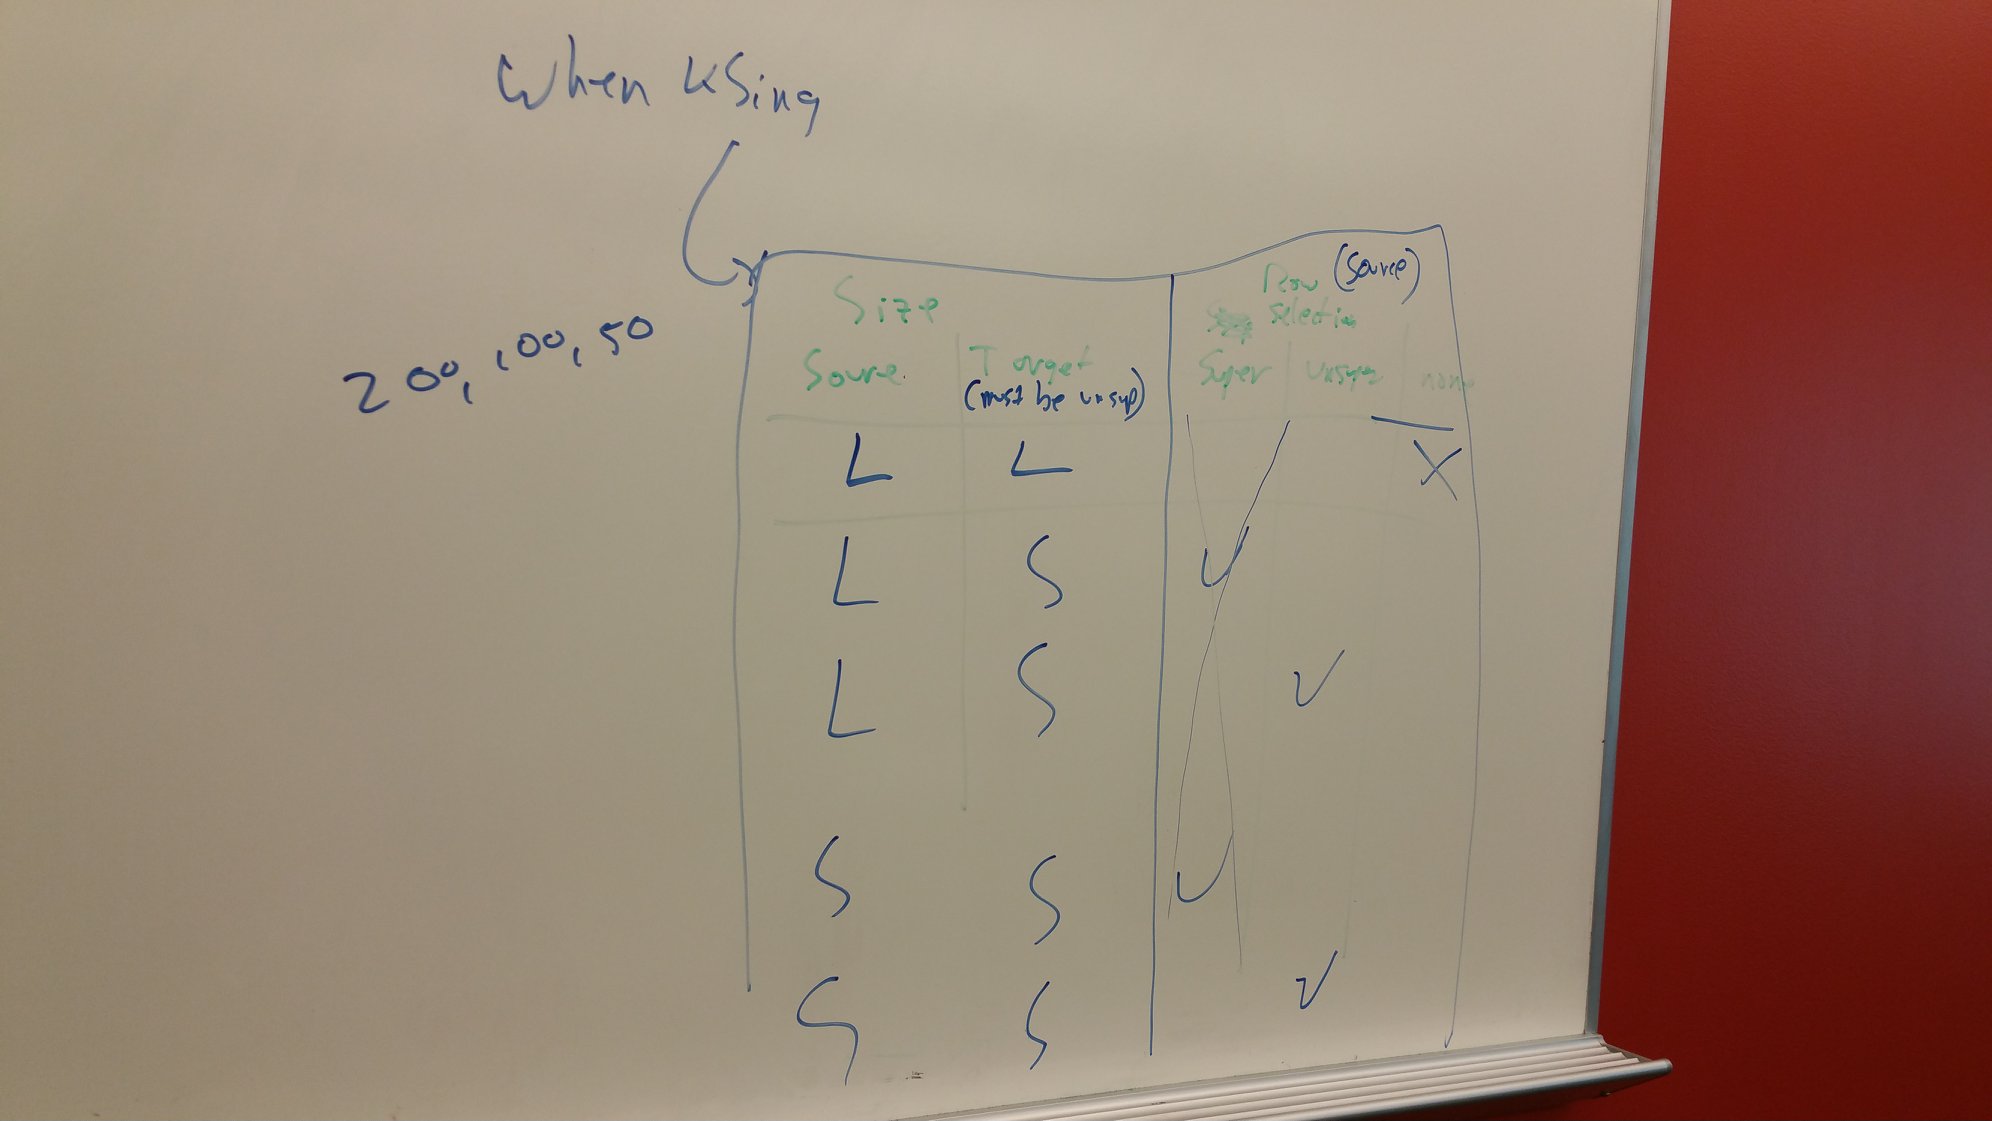 When using
200, 100, 50
Size
Row (source)
selection
Source Target super unsup none
(must be unsup)
L L X
L S ✓
L S ✓
S S ✓
S S ✓